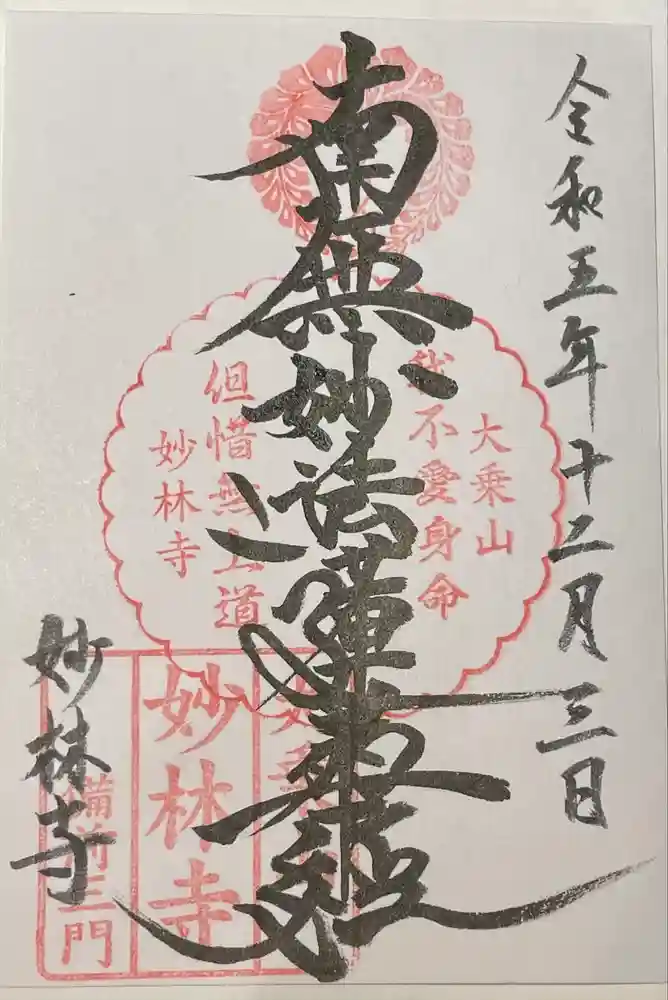 令和五年十二月三日
南無妙法蓮華經
妙林寺
大乗山
我不愛身命
但惜無上道
妙林寺
妙林寺
備前三門